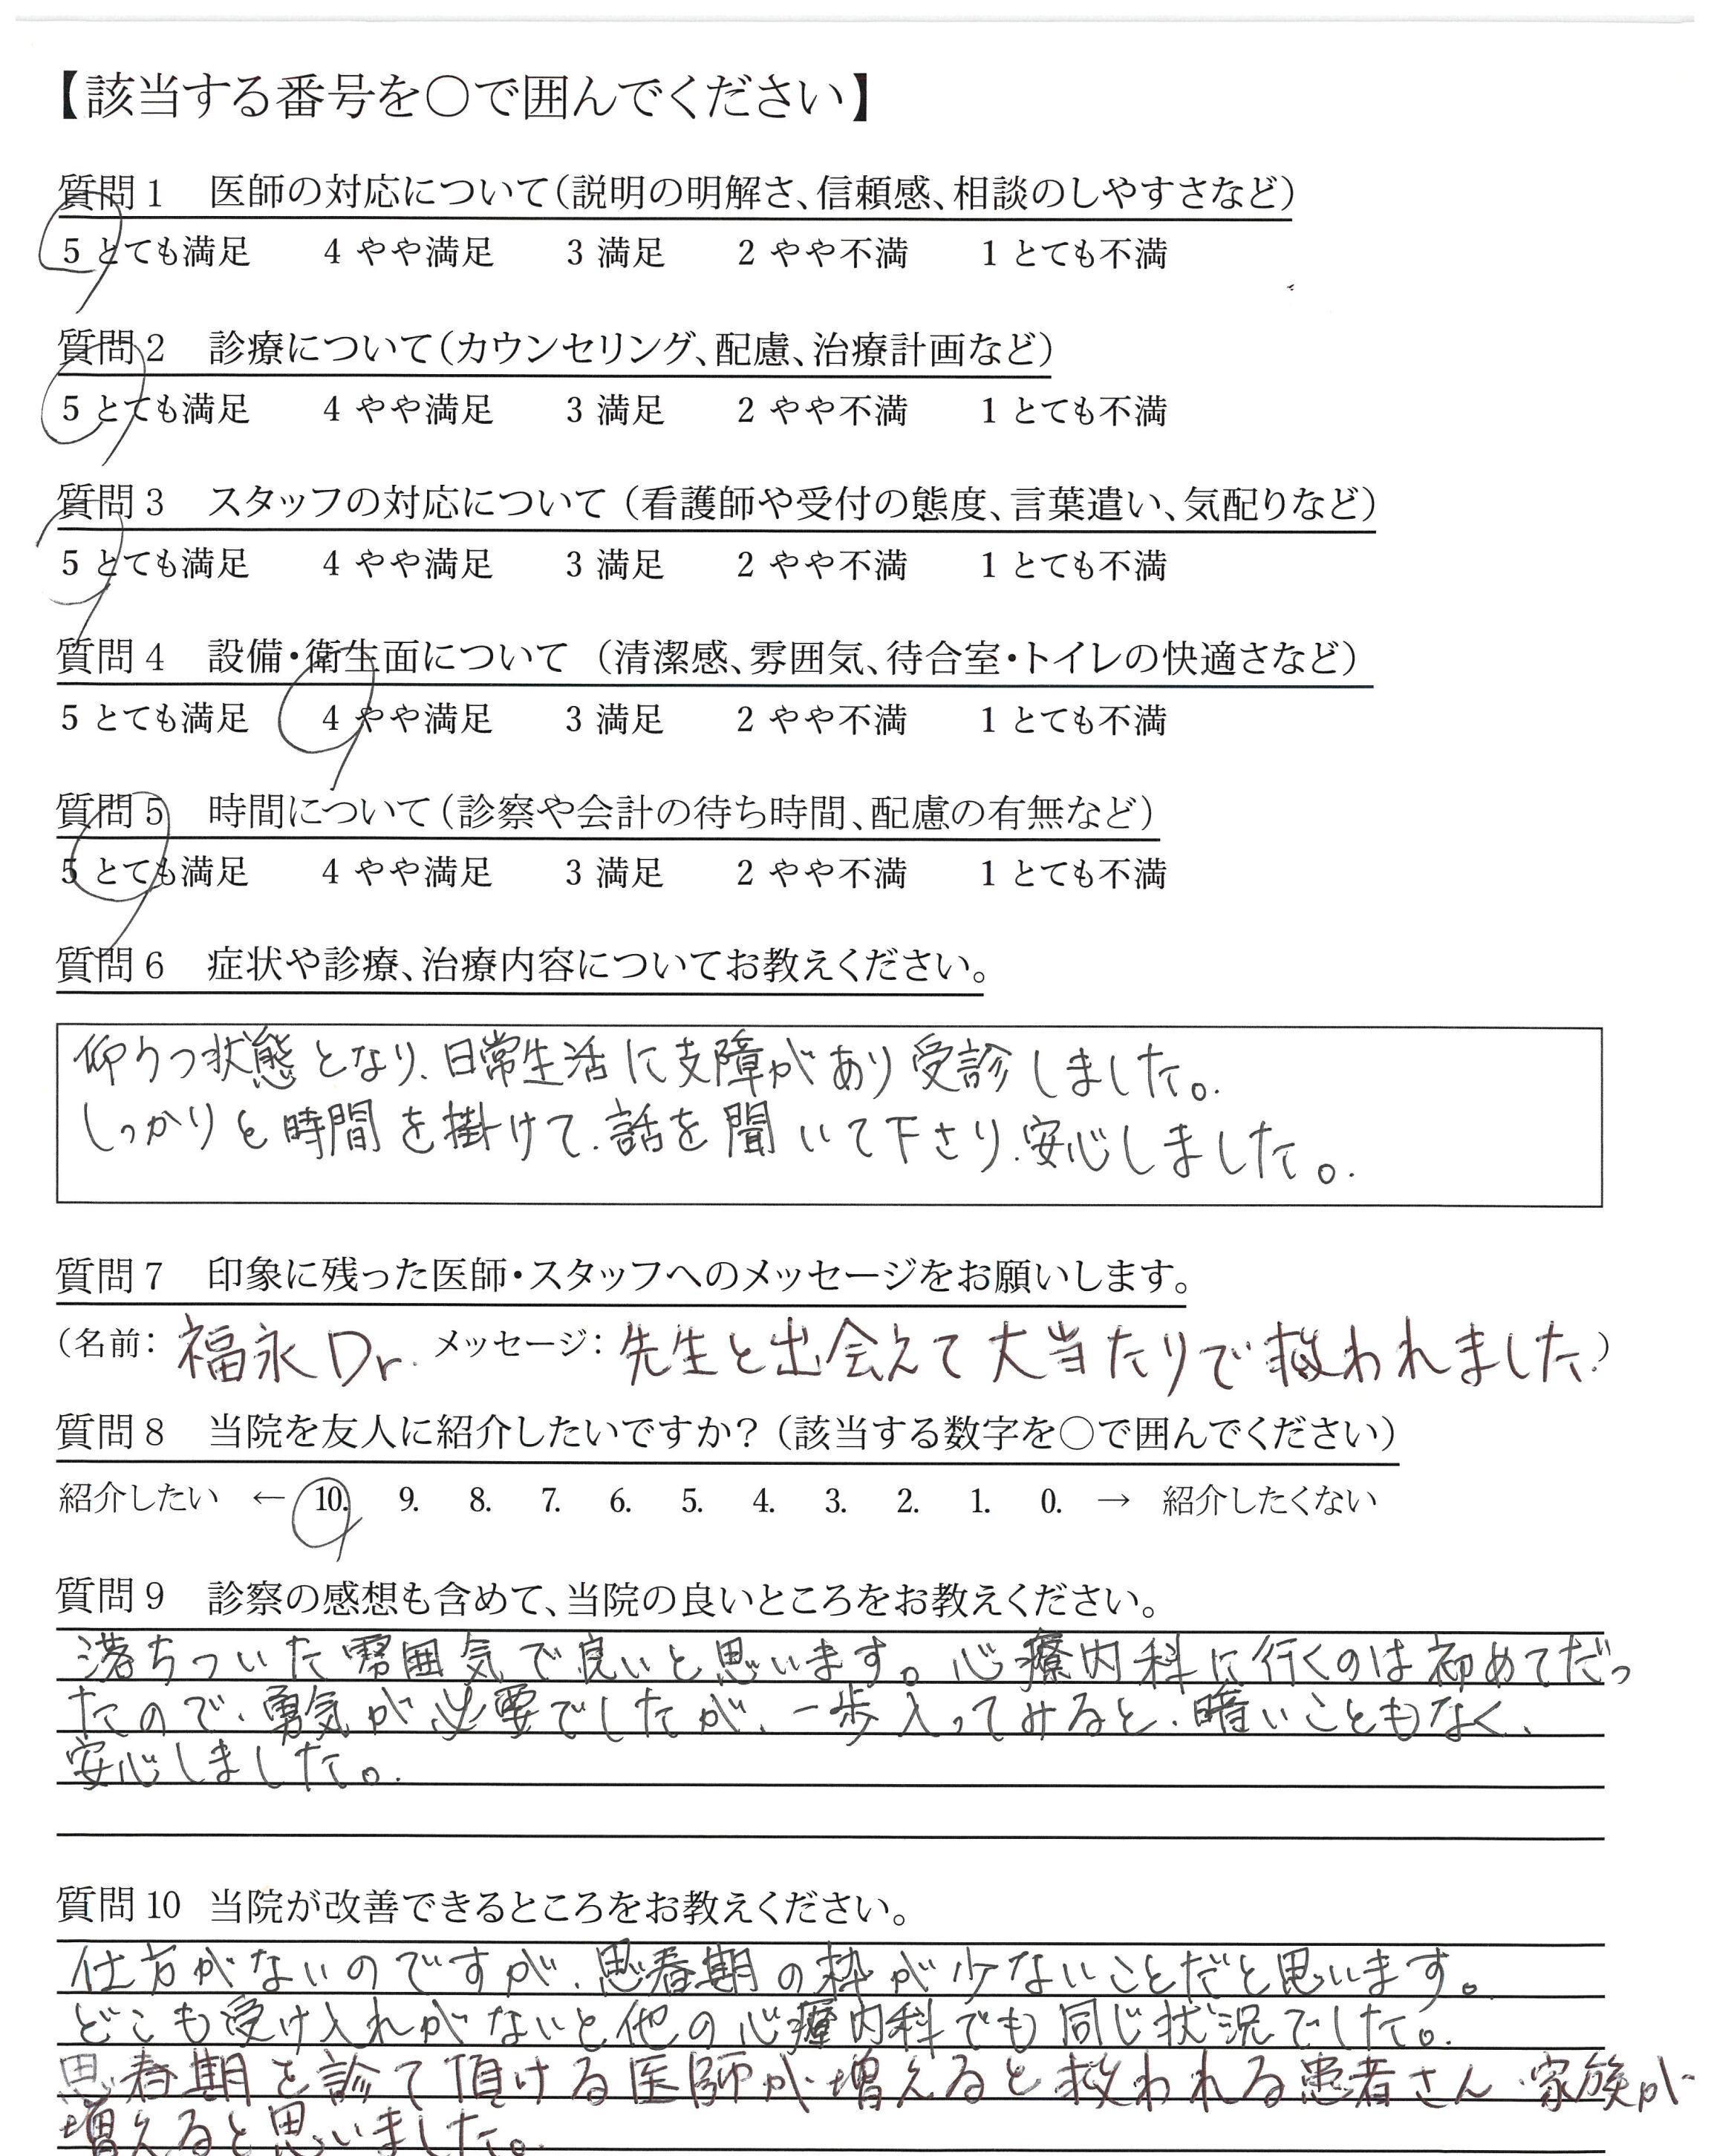 【該当する番号を○で囲んでください】
質問1 医師の対応について（説明の明解さ、信頼感、相談のしやすさなど）
5 とても満足 4 やや満足 3 満足 2 やや不満 1 とても不満
質問2 診療について（カウンセリング、配慮、治療計画など）
5 とても満足 4 やや満足 3 満足 2 やや不満 1 とても不満
質問3 スタッフの対応について（看護師や受付の態度、言葉遣い、気配りなど）
5 とても満足 4 やや満足 3 満足 2 やや不満 1 とても不満
質問4 設備・衛生面について（清潔感、雰囲気、待合室・トイレの快適さなど）
5 とても満足 4 やや満足 3 満足 2 やや不満 1 とても不満
質問5 時間について（診察や会計の待ち時間、配慮の有無など）
5 とても満足 4 やや満足 3 満足 2 やや不満 1 とても不満
質問6 症状や診療、治療内容についてお教えください。
仰うつ状態となり、日常生活に支障があり受診しました。
しっかりと時間を掛けて、話を聞いて下さり、安心しました。
質問7 印象に残った医師・スタッフへのメッセージをお願いします。
（名前：福永Dr. メッセージ：先生と出会えて大当たりで救われました。）
質問8 当院を友人に紹介したいですか？（該当する数字を○で囲んでください）
紹介したい ← 10. 9. 8. 7. 6. 5. 4. 3. 2. 1. 0. → 紹介したくない
質問9 診察の感想も含めて、当院の良いところをお教えください。
落ちついた雰囲気で良いと思います。心療内科に行くのは初めてだっ
たので、勇気が必要でしたが、一歩入ってみると、暗いこともなく、
安心しました。
質問10 当院が改善できるところをお教えください。
仕方がないのですが、思春期の枠が少ないことだと思います。
どこも受け入れがないと他の心療内科でも同じ状況でした。
思春期を診て頂ける医師が増えると救われる患者さん、家族が
増えると思いました。